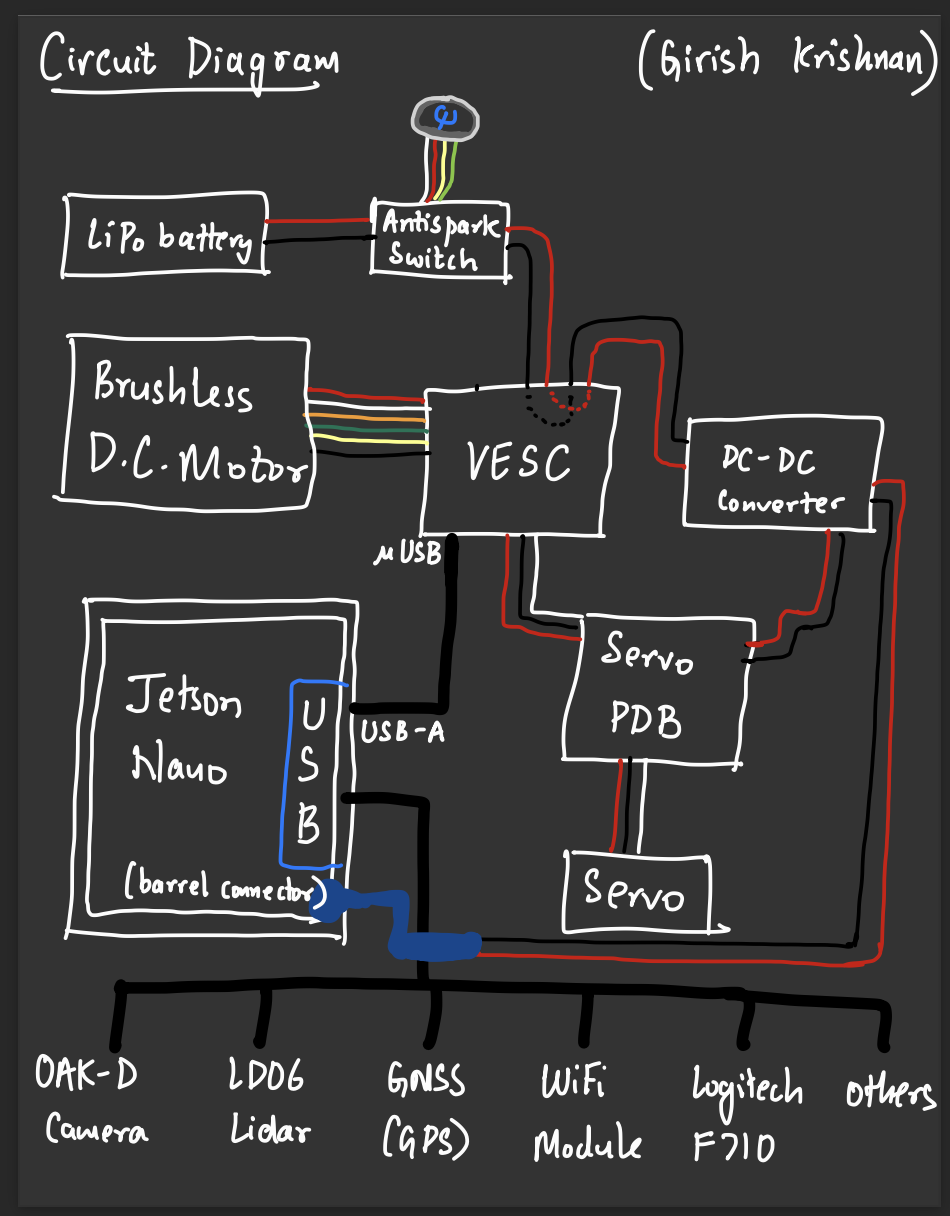 Circuit Diagram
(Girish Krishnan)
LiPo battery
Antispark
Switch
Brushless
D.C. Motor
VESC
DC-DC
Converter
μUSB
Servo
PDB
Jetson
Nano
USB
USB-A
(barrel connector)
Servo
OAK-D
Camera
LD06
Lidar
GNSS
(GPS)
WiFi
Module
Logitech
F710
others